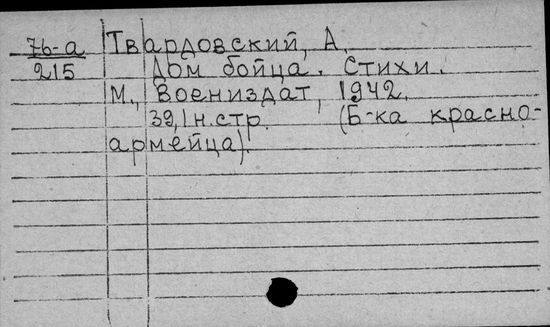 7б-а Твардовский, А.
215 Дом бойца. Стихи.
М., Воениздат, 1942.
39,1н.стр. (Б-ка красно-
армейца).